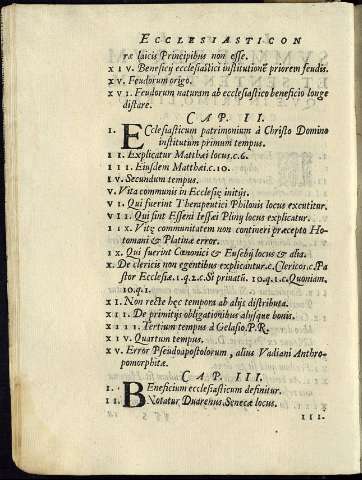 ECCLESIASTICON
rx laicis Principibus non esse.
XIV. Beneficij ecclesiastici institutionē priorem feudis.
XV. Feudorum origo.
XVI. Feudorum naturam ab ecclesiastico beneficio longe
distare.
CAP. II.
I. ECclesiasticum patrimonium à Christo Domino
institutum primum tempus.
II. Explicatur Matthæi locus.c.6.
III. Eiusdem Matthæi.c.10.
IV. Secundum tempus.
V. Vita communis in Ecclesię initijs.
VI. Qui fuerint Therapeutici Philonis locus excutitur.
VII. Qui sint Esseni Iessæi Plinij locus explicatur.
IIX. Vitę communitatem non contineri præcepto Ho-
tomani & Platinæ error.
IX. Qui fuerint Canonici & Eusebij locus & alia.
X. De clericis non egentibus explicantur.c.Clericos.c.Pa
stor Ecclesiæ.1.q.2.c.Si priuatū. 10.q.1.c.Quoniam.
10.q.1.
XI. Non recte hęc tempora ab alijs distributa.
XII. De primitijs obligationibus alijsque bonis.
XIII. Tertium tempus à Gelasio.P.R.
XIV. Quartum tempus.
XV. Error Pseudoapostolorum, alius Vadiani Anthro-
pomorphitæ.
CAP. III.
I. BEneficium ecclesiasticum definitur.
II. Notatur Duarenus. Senecæ locus.
III.